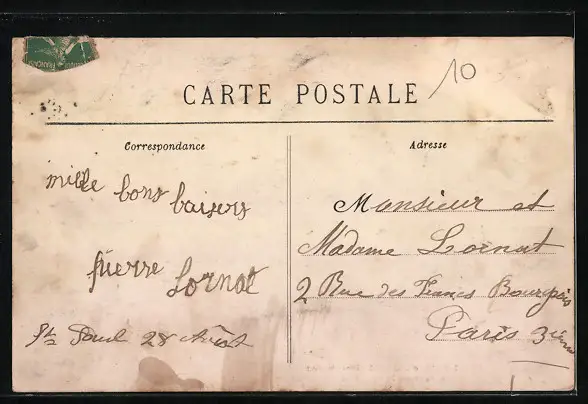 10
CARTE POSTALE
Correspondance
Adresse
mille bons baisers
pierre Lornat
St Paul 28 Août
Monsieur et
Madame Lornat
2 Rue des Francs Bourgeois
Paris 3ème